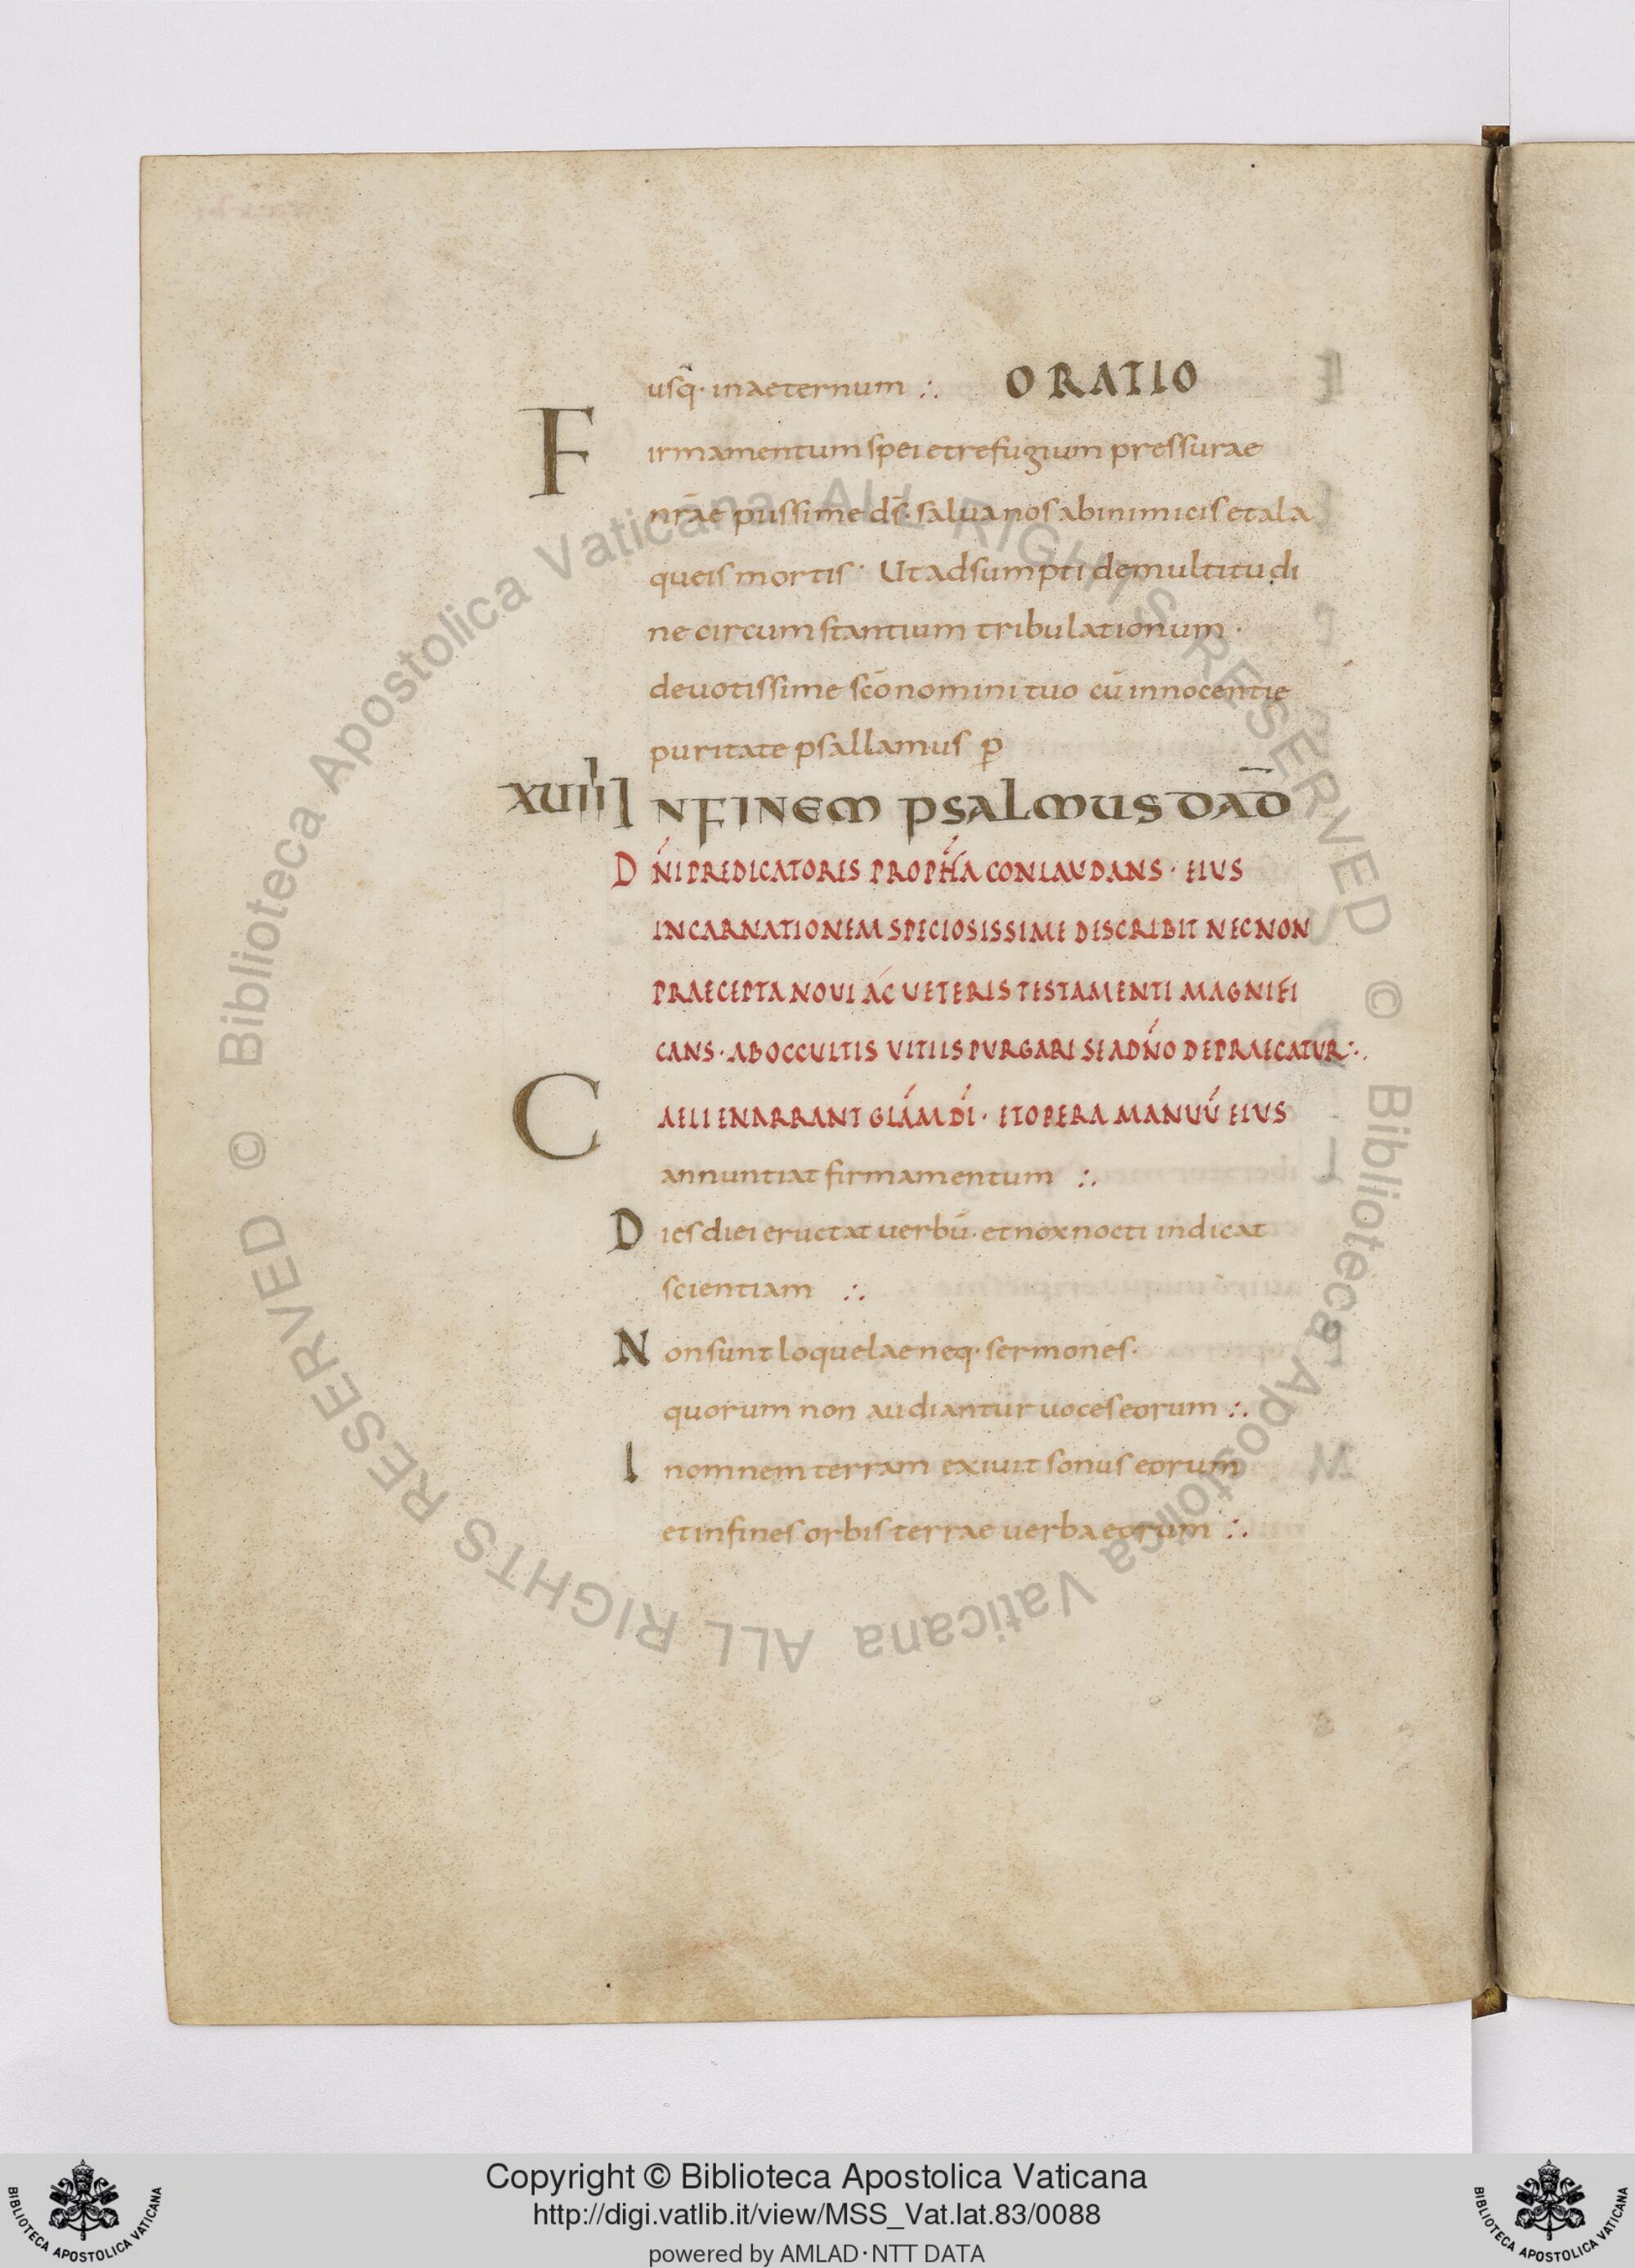 usq̄· in aeternum ∴ ORATIO
Firmamentum spei et refugium pressurae
nr̄ae piissime ds̄· salua nos ab inimicis et a la
queis mortis· Ut adsumpti de multitudi
ne circumstantium tribulationum·
deuotissime sc̄o nomini tuo cū innocentie
puritate psallamus p̄
XUIII IN FINEM PSALMUS DAD̄
DN̄I PREDICATORES PROPH̄A CONLAUDANS· EIUS
INCARNATIONEM SPECIOSISSIME DESCRIBIT NECNON
PRAECEPTA NOUI AC UETERIS TESTAMENTI MAGNIFI
CANS· AB OCCULTIS UITIIS PURGARI SE A DN̄O DEPRAECATUR∴
CAELI ENARRANT GLĀM DĪ· ET OPERA MANUŪ EIUS
annuntiat firmamentum ∴
Dies diei eructat uerbū· et nox nocti indicat
scientiam ∴
Non sunt loquelae neq· sermones·
quorum non audiantur uoces eorum ∴
In omnem terram exiuit sonus eorum
et in fines orbis terrae uerba eorum ∴
© Biblioteca Apostolica Vaticana ALL RIGHTS RESERVED © Biblioteca Apostolica Vaticana ALL RIGHTS RESERVED
Copyright © Biblioteca Apostolica Vaticana
http://digi.vatlib.it/view/MSS_Vat.lat.83/0088
powered by AMLAD·NTT DATA
BIBLIOTECA APOSTOLICA VATICANA
BIBLIOTECA APOSTOLICA VATICANA